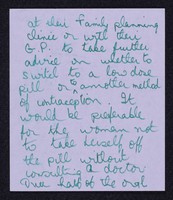 at their family planning
clinic or with their
G.P. to take further
advice on whether to
switch to a low dose
pill or to another method
of contraception. It
would be preferable
for the woman not
to take herself off
the pill without
consulting a doctor
One half of the oral